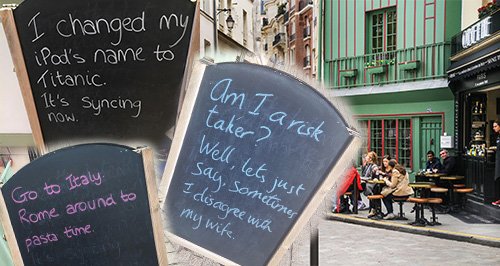 I changed my
iPod's name to
Titanic.
It's syncing
now.
Am I a risk
taker?
Well, lets, just
say. Sometimes
I disagree with
my wife.
Go to Italy.
Rome around to
pasta time.